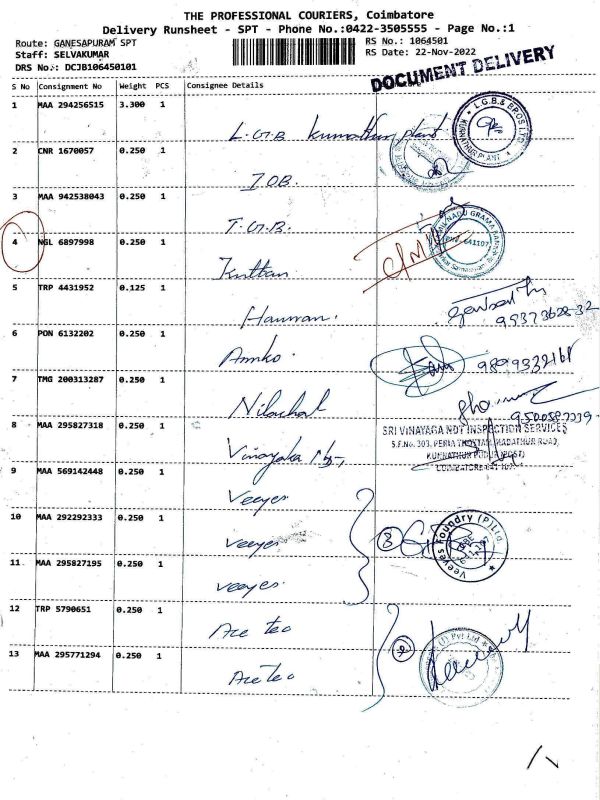 THE PROFESSIONAL COURIERS, Coimbatore
Delivery Runsheet - SPT - Phone No.:0422-3505555 - Page No.:1
Route: GANESAPURAM SPT
RS No.: 1064501
Staff: SELVAKUMAR
RS Date: 22-Nov-2022
DRS No.: DCJB106450101
DOCUMENT DELIVERY
S No Consignment No Weight PCS Consignee Details
1 MAA 294256515 3.300 1
L.G.B. kunnathur plant
L.G.B.& BROS LTD
KURNATHUR PLANT
2 CNR 1670057 0.250 1
I.O.B.
3 MAA 942538043 0.250 1
T.G.B.
TAMILNADU GRAMA BANK
PIN: 641107
4 NGL 6897998 0.250 1
Kuttan
5 TRP 4431952 0.125 1
Hanuman.
6 PON 6132202 0.250 1
Amko.
7 TMG 200313287 0.250 1
Nilachal
8 MAA 295827318 0.250 1
Vinayaka
SRI VINAYAGA NDT INSPECTION SERVICES
S.F.No. 303, PERIA THOTTAM, MADATHUR ROAD,
KUNNATHUR PUDUR (POST)
COIMBATORE-641 107.
9 MAA 569142448 0.250 1
Veeyes
10 MAA 292292333 0.250 1
Veeyes
3
Veeyes Foundry (P) Ltd
11 MAA 295827195 0.250 1
Veeyes.
12 TRP 5790651 0.250 1
Ace tec
2
13 MAA 295771294 0.250 1
Ace tec
(I) Pvt Ltd